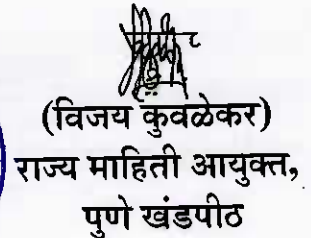 (विजय कुवळेकर)
राज्य माहिती आयुक्त,
पुणे खंडपीठ